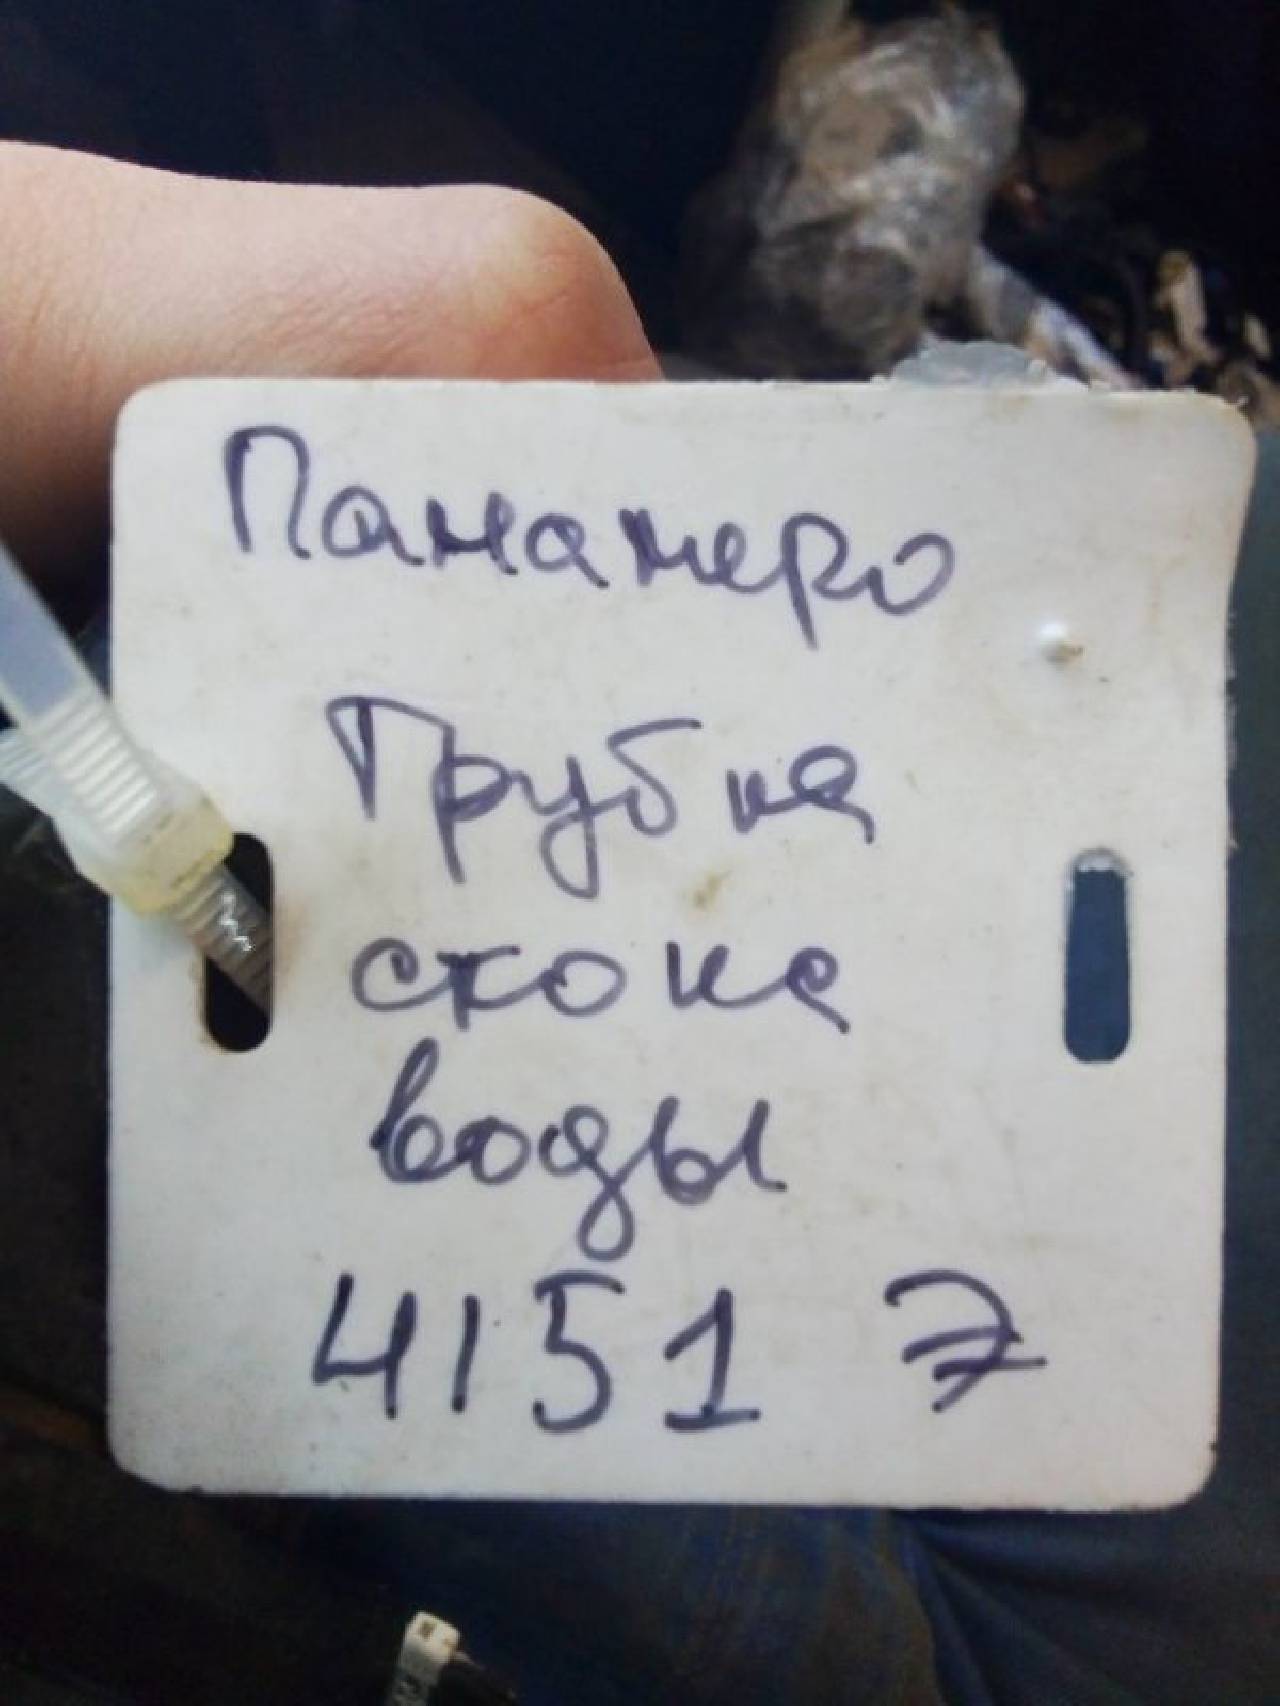 Панамеро
Трубка
стока
воды
4151 Э